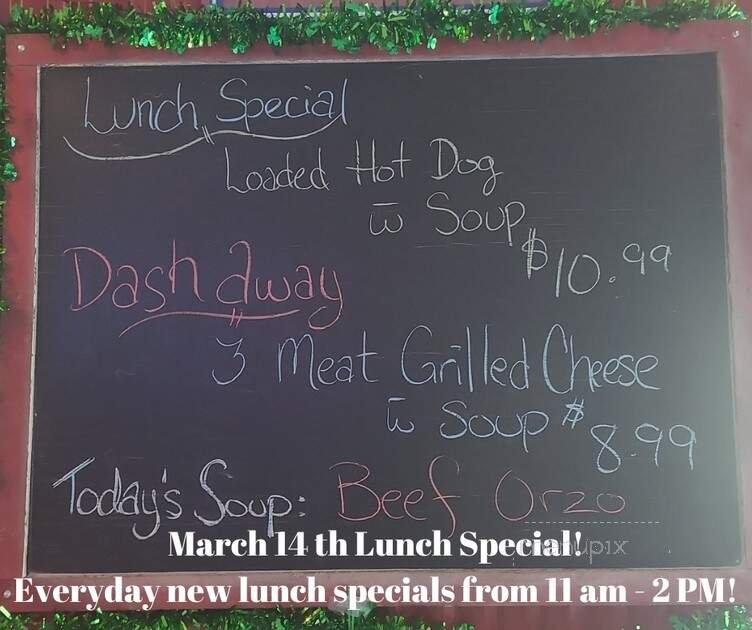 Lunch Special
Loaded Hot Dog
w̄ Soup
$10.99
Dash away
3 Meat Grilled Cheese
w̄ Soup $8.99
Today's Soup: Beef Orzo
menupix
March 14 th Lunch Special!
Everyday new lunch specials from 11 am - 2 PM!